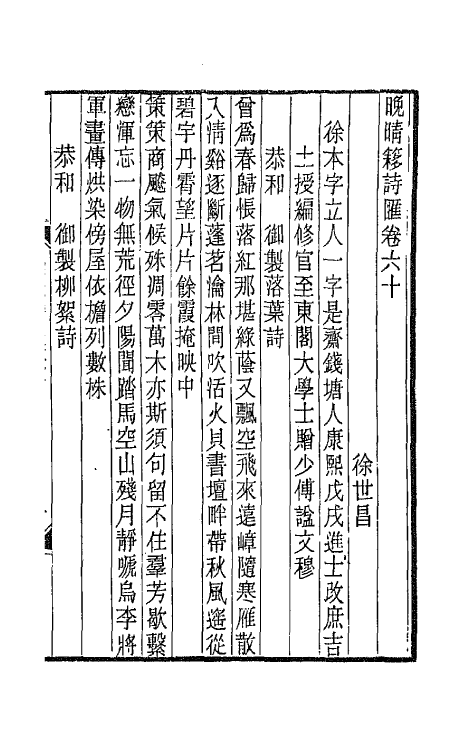 晚晴簃詩匯卷六十
徐世昌
徐本字立人一字是齋錢塘人康熙戊戌進士改庶吉
士授編修官至東閣大學士贈少傅諡文穆
恭和　御製落葉詩
曾爲春歸悵落紅那堪綠蔭又飄空飛來遠嶂隨寒雁散
入情谿逐斷蓬茗瀹林間吹活火貝書壇畔帶秋風遙從
碧宇丹霄望片片餘霞掩映中
策策商飈氣候殊凋零萬木亦斯須句留不住羣芳歇繫
戀渾忘一物無荒徑夕陽聞踏馬空山殘月靜嗁烏李將
軍畫傳烘染傍屋依檐列數株
恭和　御製柳絮詩